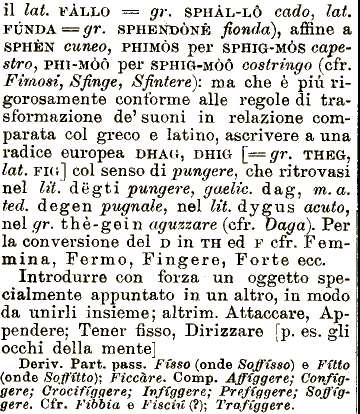 il lat. FÀLLO = gr. SPHÀL-LÔ cado, lat.
FÚNDA = gr. SPHENDÒNÊ fionda), affine a
SPHÈN cuneo, PHIMÒS per SPHIG-MÒS cape-
stro, PHI-MÒÔ per SPHIG-MÒÔ costringo (cfr.
Fimosi, Sfinge, Sfintere): ma che è piú ri-
gorosamente conforme alle regole di tra-
sformazione de' suoni in relazione com-
parata col greco e latino, ascrivere a una
radice europea DHAG, DHIG [= gr. THEG,
lat. FIG] col senso di pungere, che ritrovasi
nel lit. dëgti pungere, gaelic. dag, m. a.
ted. degen pugnale, nel lit. dygus acuto,
nel gr. thê-gein aguzzare (cfr. Daga). Per
la conversione del D in TH ed F cfr. Fem-
mina, Fermo, Fingere, Forte ecc.
Introdurre con forza un oggetto spe-
cialmente appuntato in un altro, in modo
da unirli insieme; altrim. Attaccare, Ap-
pendere; Tener fisso, Dirizzare [p. es. gli
occhi della mente]
Deriv. Part. pass. Físso (onde Soffisso) e Fítto
(onde Soffítto); Ficcàre. Comp. Affíggere; Confíg-
gere; Crocifíggere; Infíggere; Prefíggere; Soffíg-
gere. Cfr. Fibbia e Fiscíni (?); Trafíggere.